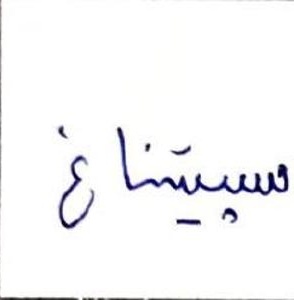 سبيتناغ